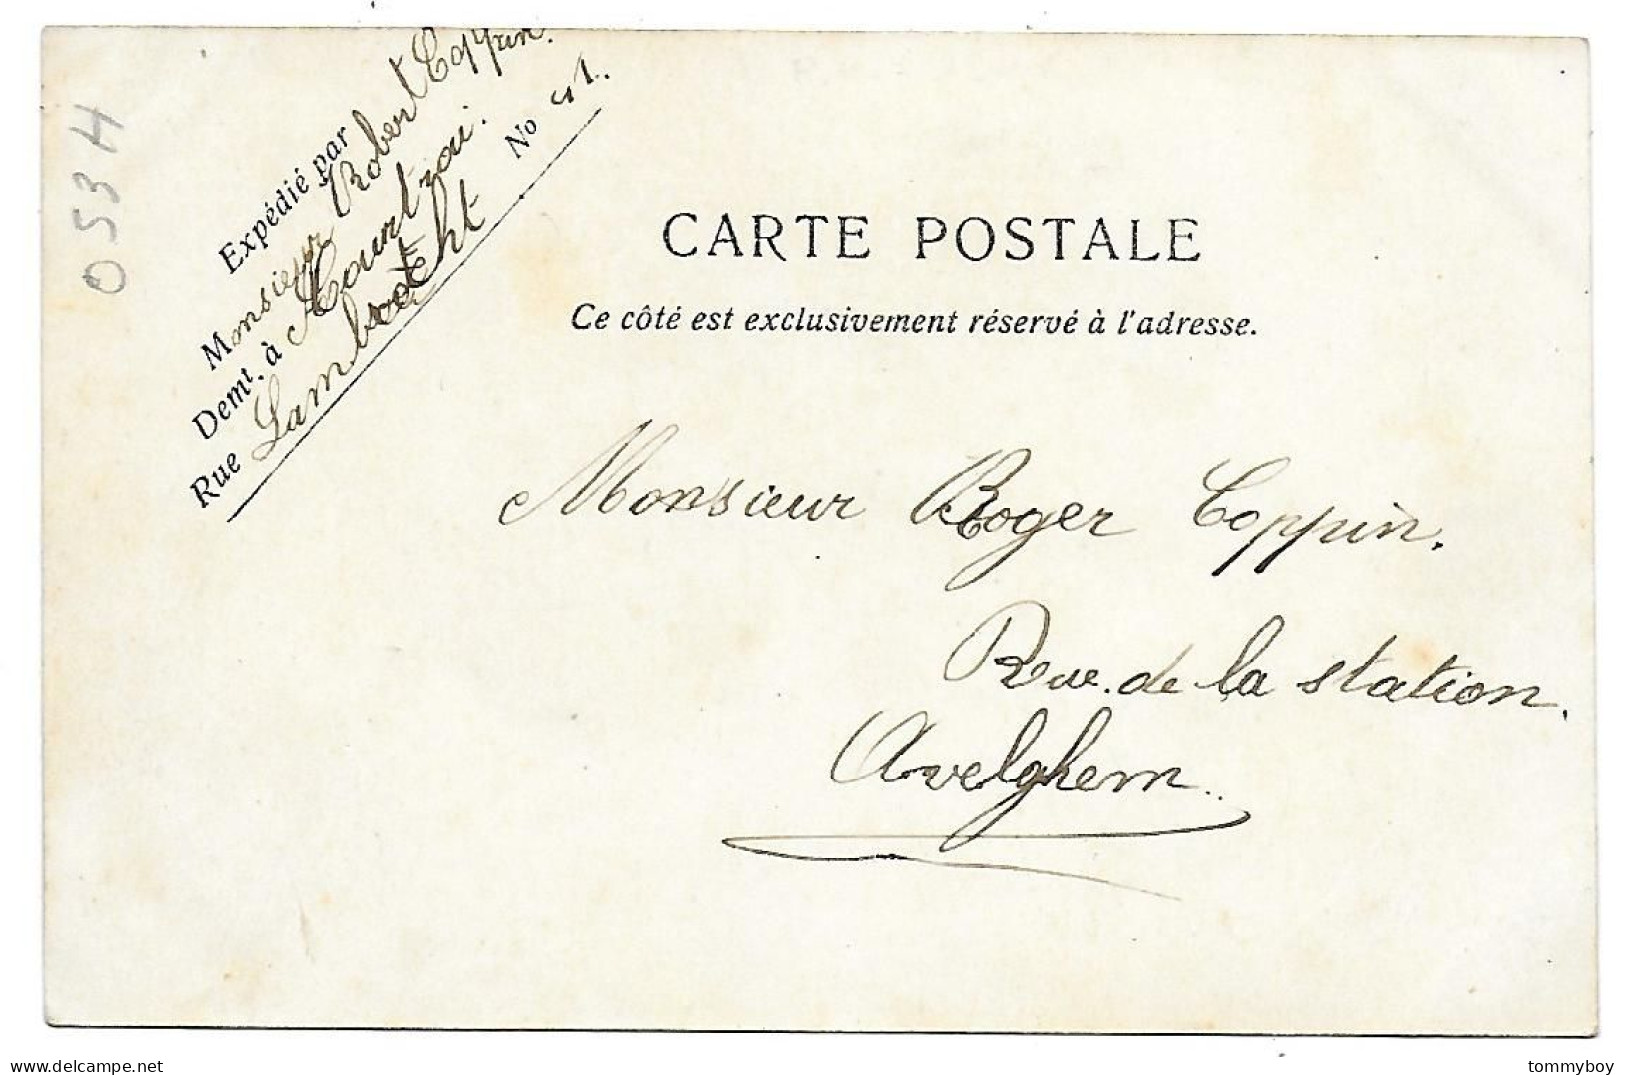 Expédié par
Monsieur Robert Coppin.
Dem.t à Courtrai.
Rue No
CARTE POSTALE
Ce côté est exclusivement réservé à l'adresse.
Monsieur Roger Coppin.
Rue de la station.
Avelghem.
053H
tommyboy